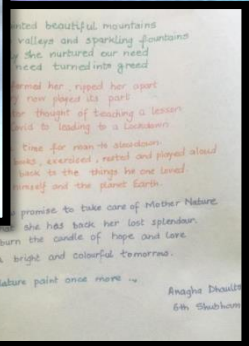 beautiful mountains
valleys and sparkling fountains
she nurtured our need
need turned into greed
her, ripped her apart
now played its part
thought of teaching a lesson
to leading to a Lockdown
time for man to slowdown.
exercised, rested and played aloud
back to the things he one loved.
himself and the planet Earth.
promise to take care of Mother Nature
she has back her lost splendour.
burn the candle of hope and love
bright and colourful tomorrow.
Nature paint once more
Anagha
6th Shubham